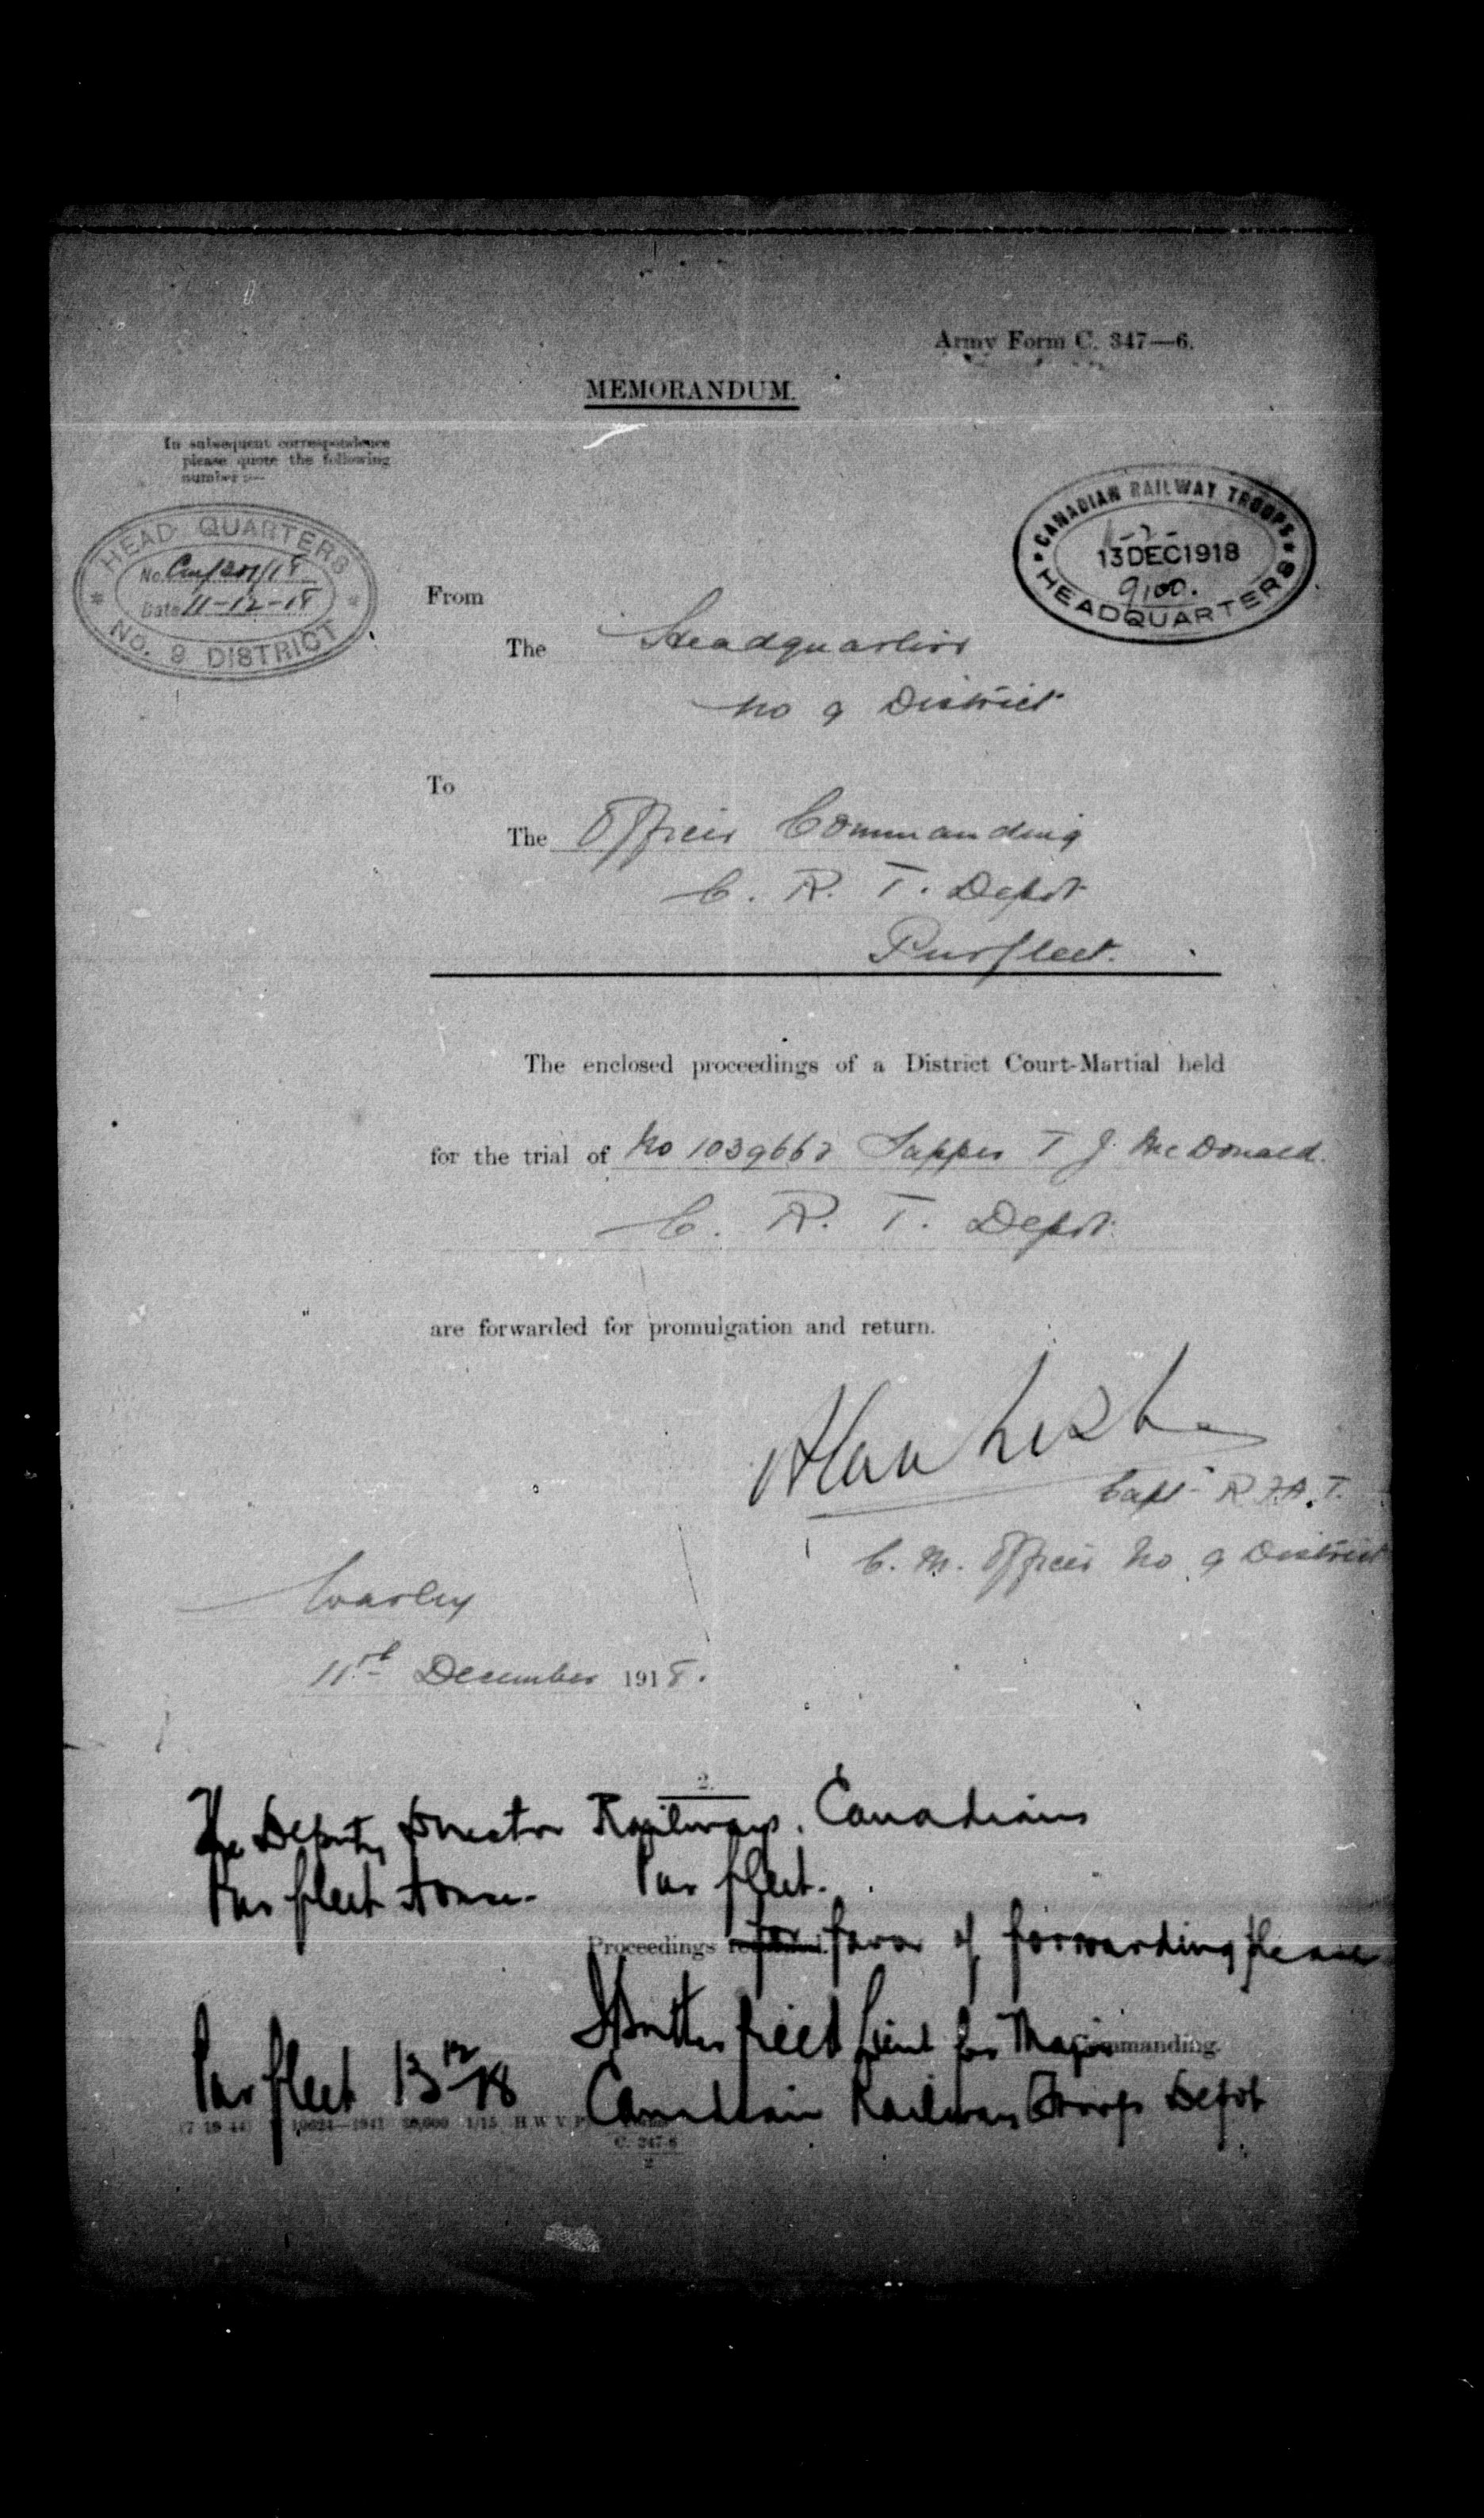 Army Form C. 347—6.
MEMORANDUM.
In subsequent correspondence
please quote the following
number :—
HEAD QUARTERS
No.
Date 11-12-18
No. 9 DISTRICT
CANADIAN RAILWAY TROOPS
13 DEC 1918
9,100.
HEADQUARTERS
From
The Headquarters
No 9 District
To
The Officer Commanding
C. R. T. Depot
Purfleet.
The enclosed proceedings of a District Court-Martial held
for the trial of No 1039662 Sapper T J. McDonald.
C. R. T. Depot.
are forwarded for promulgation and return.
Capt R.F.A. T.
C. M. Officer No 9 District
Warley
11th December 1918.
2.
The Deputy Director Railways. Canadians
Purfleet House. Purfleet.
Proceedings for favor of forwarding please
Butterfield Lieut for Major Commanding.
Purfleet 13 12/18 Canadian Railway Troops Depot